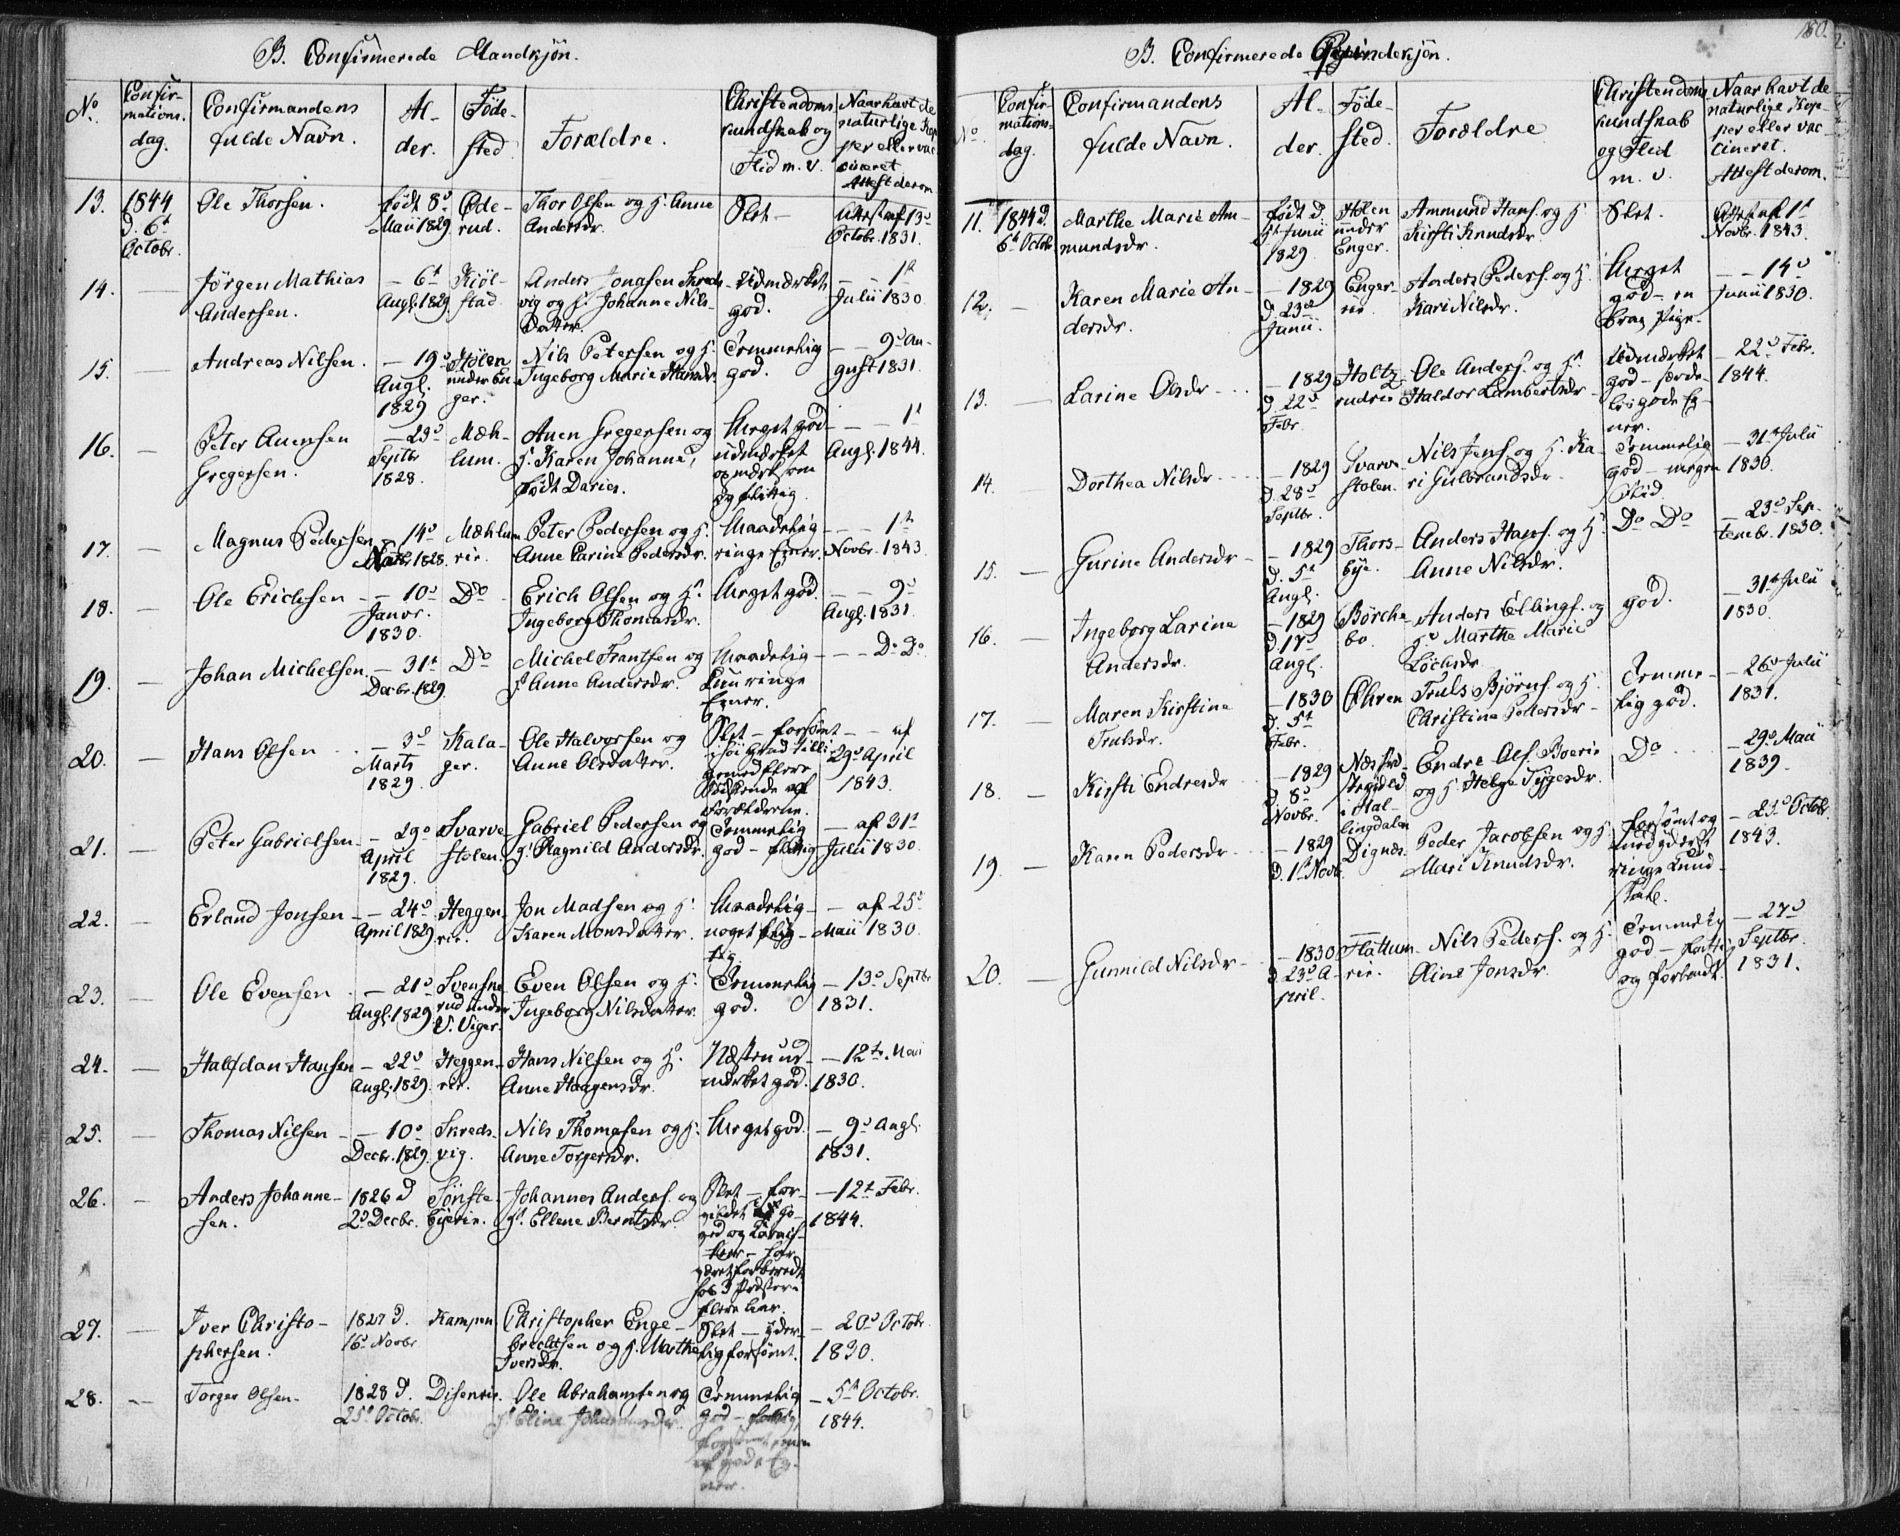 B. Confirmerede Mandkjön.
No.
Confir-
mations.
dag.
Confirmandens
fulde Navn.
Al-
der.
Føde-
sted
Forældre.
Christendoms
kundskab og
Flid m. v.
Naar havt de
naturlige Kop
per eller vac
cineret
Attest derom
13. 1844
d. 6t
Octobr.
Ole Thorsen.
født 8d
Maii 1829.
Øde-
rud.
Thor Olsen og H. Anne
Andersdr.
Slet -
Attest af 13d
Octobr. 1831.
14. — Jørgen Mathias
Andersen.
— 6t
Augl. 1829.
Kiöl-
stad.
Anders Jonasen Skreds
vig og H. Johanne Nils
Datter
Udmærket
god.
— — 1t
Julii 1830.
15. — Andreas Nilsen.
— 19d
Augl.
1829
Hølen
under En-
ger.
Nils Petersen og H.
Ingeborg Marie Hansdr.
Temmelig
god.
— — 9d Au-
gust 1831.
16. — Peter Auensen
Gregersen.
— 23d
Septbr
1828.
Mæh-
lum.
Auen Gregersen og
H. Karen Johanne,
født Daries.
Meget god
udmærket
opmærksom
og flittig.
— — 1t
Augl. 1844.
17. — Magnus Pedersen
— 14d
1828.
Mæhlum
eie.
Peter Pedersen og H.
Anne Carine Pedersdr.
Maadelig
ringe Evner.
— — 1t
Novbr. 1843.
18. — Ole Erichsen
— 10d
Janvr.
1830.
Do
Erich Olsen og H.
Ingeborg Thomasdr.
Meget god.
— — 9d
Augl. 1831.
19. — Johan Michelsen
— 31t
Decbr. 1829.
Do
Michel Frantsen og
H. Anne Andersdr.
Maadelig
kun ringe
Evner.
— — Do Do
20. — Hans Olsen
— 3d
Marts
1829.
Kala-
ger.
Ole Halvorsen og
Anne Olsdatter.
Slet — forsömt
i höi Grad
Forældrene.
— — af
29d April
1843.
21. — Peter Gabrielsen
— 29d
April
1829.
Svarve-
stolen.
Gabriel Pedersen og
H. Ragnild Andersdr.
Temmelig
god — flittig
— af 31t
Julii 1830.
22. — Erland Jonsen
— 24d
April 1829.
Heggen-
eie.
Jon Madsen og H.
Karen Monsdatter.
Maadelig
noget
— af 25d
Maii 1830.
23. — Ole Evensen
— 21d
Augl. 1829.
Svensne-
rud under
V. Viger.
Even Olsen og H.
Ingeborg Nilsdatter.
Temmelig
god.
— 13d Septbr
1831.
24. — Halfdan Hansen
— 22d
Augl. 1829.
Heggen-
eie.
Hans Nilsen og H.
Anne Haagensdr.
Næsten ud-
mærket god.
— 12te Maii
1830.
25. — Thomas Nilsen
— 10d
Decbr. 1829.
Skreds-
vig.
Nils Thomesen og H.
Anne Torgersdr.
Meget god.
— 9d Augl.
1831.
26. — Anders Johanne-
sen.
1826 d
2d Decbr.
Tönste-
byeeie.
Johannes Anders. og
H. Ellene Berntsdr.
Slet — for-
hos 3 Præster i
flere Aar.
— 12t Febr.
1844.
27. — Iver Christo-
phersen.
1827 d.
16d Novbr.
Kampen
Christopher Enge-
brechtsen og H. Marthe
Iversdr.
Slet — yder-
lig forsömt.
— 20d Octobr.
1830.
28. — Torger Olsen.
1828 d.
25d Octobr.
Diseneie.
Ole Abrahamsen og
H. Eline
Temmelig
god —
— 5t Octobr.
1844.
180.
B. Confirmerede Qvindekjön.
No
Confir-
mations-
dag.
Confirmandens
fulde Navn.
Al-
der.
Føde-
sted.
Forældre
Christendoms
kundskab
og Flid
m. v.
Naar havt de
naturlige Kop-
per eller vac-
cineret.
Attest derom.
11. 1844 d.
6t Octobr.
Marthe Marie Am-
mundsdr.
født d.
5t Junii
1829
Hølen
under
Enger.
Ammund Hans. og H
Kirsti Knudsdr.
Slet.
Attest af 1t
Novbr. 1843.
12. — Karen Marie An-
dersdr.
— 1829
d. 23d
Junii.
Enger-
eie.
Anders Peders. og H.
Kari Nilsdr.
Meget
god — en
brav Pige.
— — 14d
Junii 1830.
13. — Larine Olsdr
— 1829
d. 22d
Febr.
Holtz-
rudeie
Ole Anders. og H.
Haldor Lambertsdr
Udmærket
god — særde-
les gode Ev-
ner.
— 22d Febr.
1844.
14. — Dorthea Nilsdr
— 1829
d. 28d
Septbr.
Svarve-
stolen.
Nils Jens. og H. Ka-
ri Gulbrandsdr.
Temmelig
god — megen
Flid.
— 31t Julii
1830.
15. — Gurine Andersdr
— 1829
d. 5t
Augl.
Thors-
bye.
Anders Hans. og H.
Anne Nilsdr.
Do Do
— 23d Sep-
tembr. 1830.
16. — Ingeborg Larine
Andersdr.
— 1829
d. 17d
Augl.
Børche-
bo.
Anders Ellings. og
H. Marthe Marie
god.
— 31t Julii
1830.
17. — Maren Kirstine
Trulsdr.
— 1830
d. 5t
Febr.
Ohren
Truls Bjørns. og H.
Christine Pedersdr
Temme-
lig god.
— 26d Julii
1831.
18. — Kirsti Endresdr
— 1829
d. 8d
Novbr.
Næs
i Hal-
lingdalen
Endre Ols. Boeeie
og H. Helge Tygesdr.
Do
— 29d Maii
1839.
19. — Karen Pedersdr
— 1829
d. 1t Novbr.
Dignæs.
Peder Jacobsen og H.
Mari Knudsdr.
Forsömt og
med yderst
ringe Kund-
skab.
— 23d Octobr.
1843.
20. — Gunnild Nilsdr
— 1830
d. 23d A-
pril.
Flattum-
eie.
Nils Peders. og H.
Oline Jonsdr.
Temmelig
god — fattig
og
— 27d
Septbr.
1831.